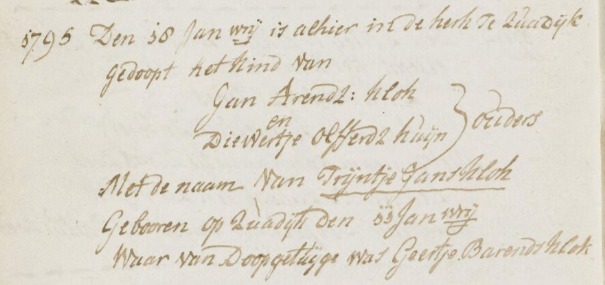 1795 Den 18 Janwrij is alhier in de kerk te Quadijk
gedoopt het kind van
Jan Arendz: klok
en
Diewertje Olfferdz kuijn } ouders
Met de naam van Trijntje Jans klok
Gebooren op Quadijk den 11 Janwrij
Waar van Doopgetuijge was Geertje Barends klok